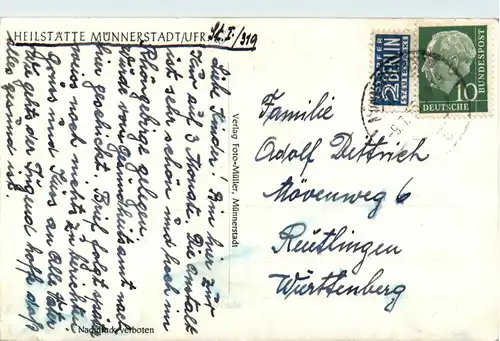 HEILSTÄTTE MÜNNERSTADT/UFR.
St. I./319
Liebe Kinder! Bin hier zur
Kur auf 3 Monate. Die Anstalt
ist sehr schön und hoch im
Rhöngebirge gelegen.
Wurde vom Gesundheitsamt nach
hier geschickt. Brief folgt später
muss noch mehr zu berichten
Grüss und Kuss an Alle Vater
Wie geht's der Jugend hoffe daß
alles gesund ist.
Verlag Foto-Müller, Münnerstadt
Nachdruck verboten
NOTOPFER
2 BERLIN
STEUERMARKE
10
DEUTSCHE
BUNDESPOST
Familie
Adolf Dettrich
Mövenweg 6
Reutlingen
Württenberg